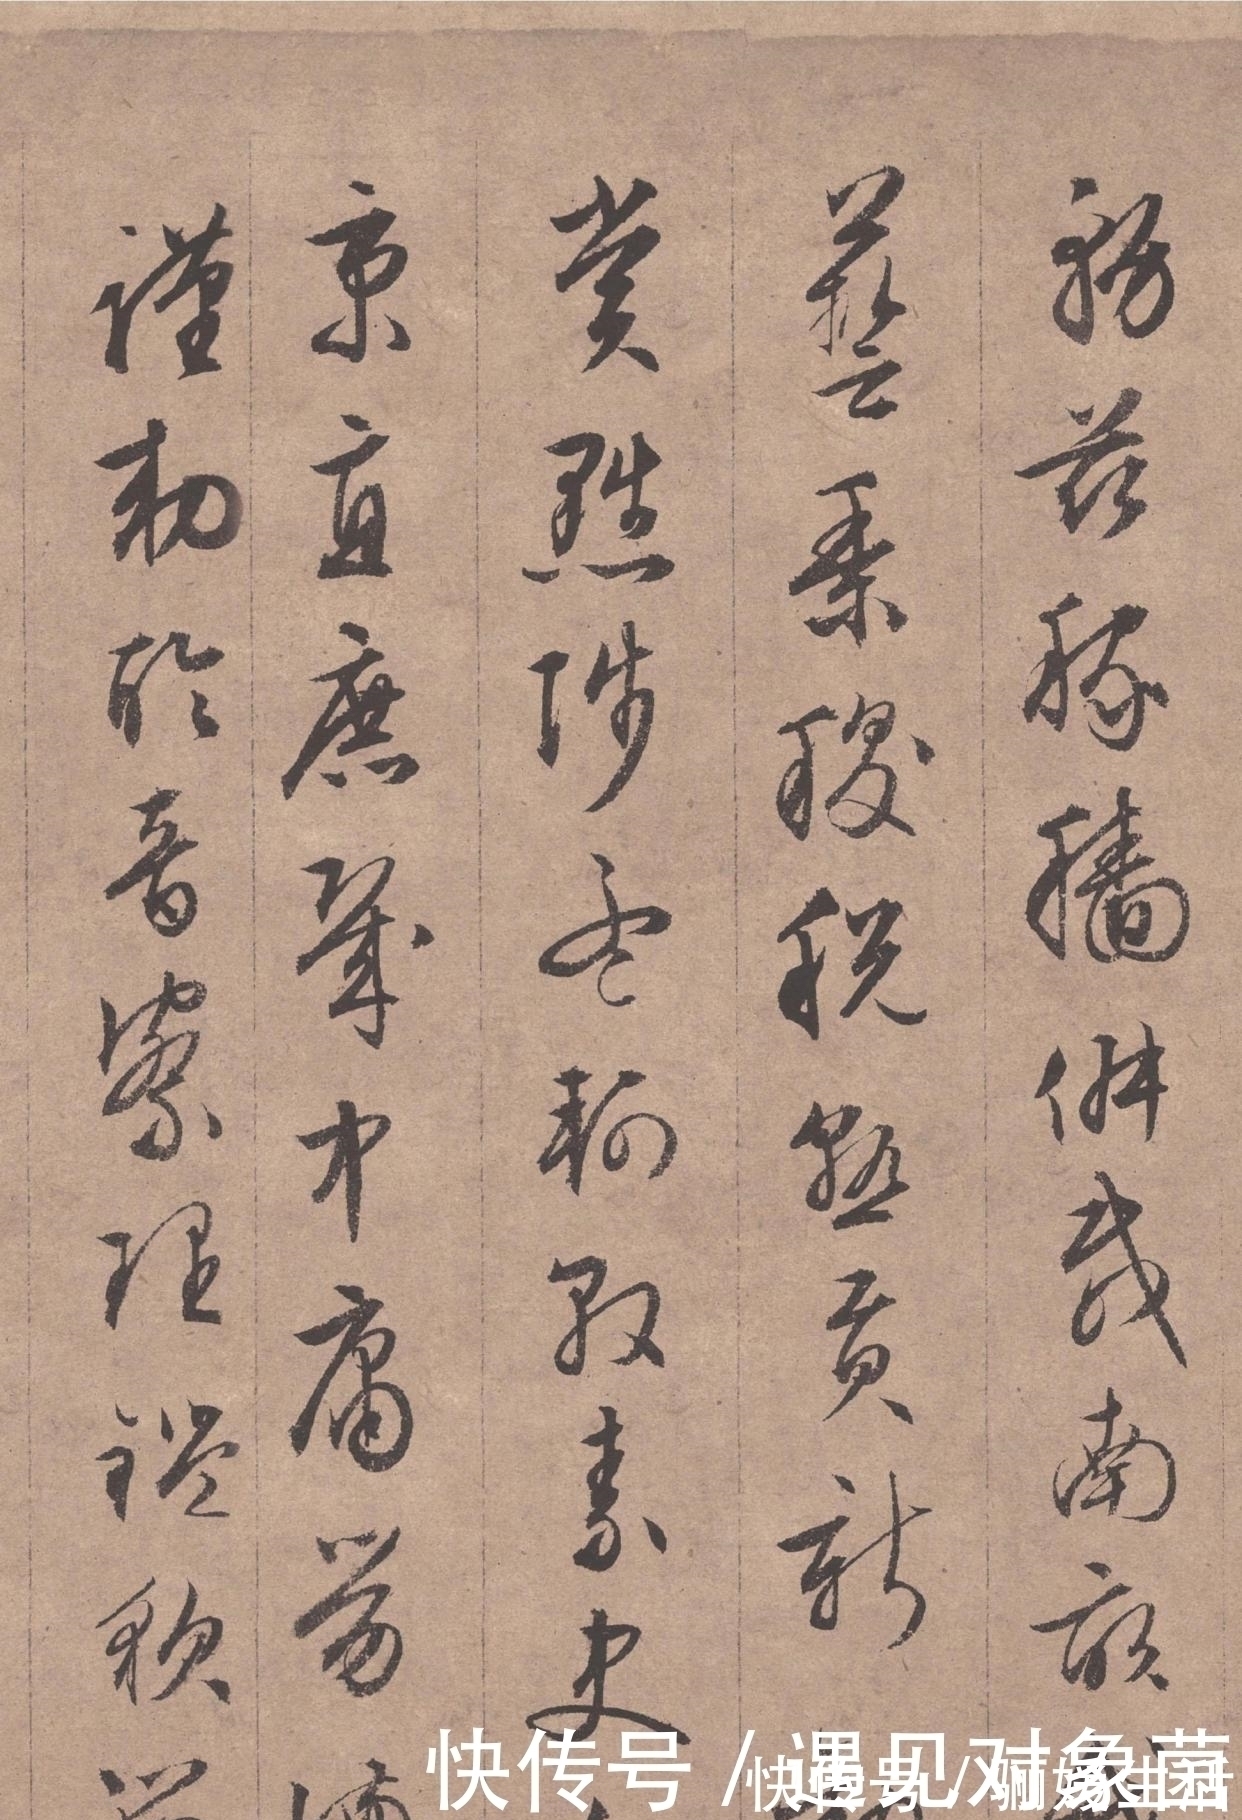 務茲稼穡俶載南畝
藝黍稷稅熟貢新
賞黜陟孟軻敦素史
秉直庶幾中庸勞
謹勅聆音察理鑑貌
快传号 / 遇见对象菌
快传号 / 生活